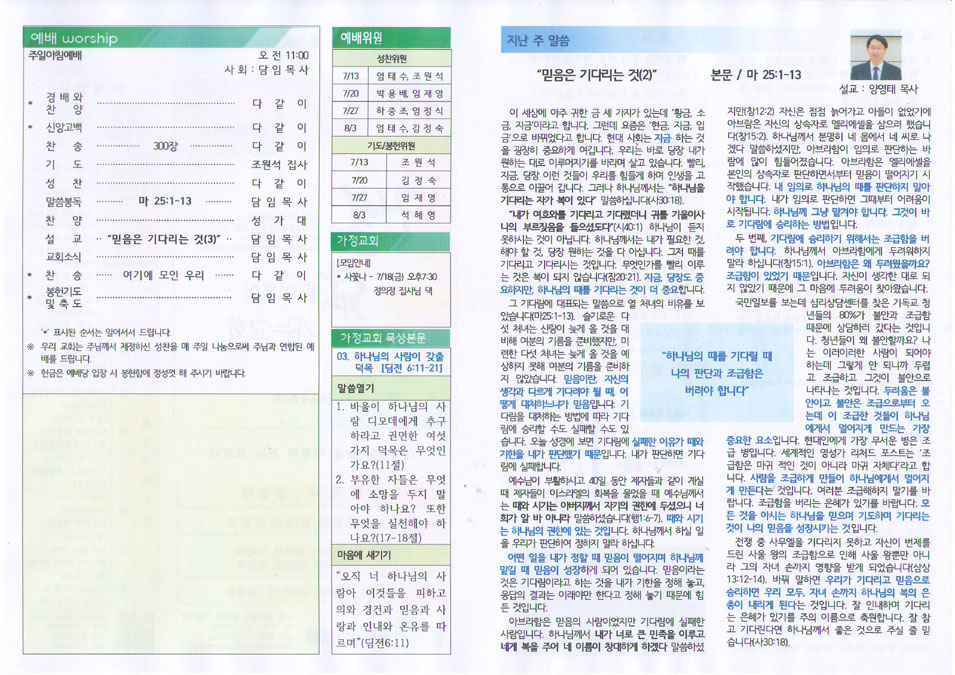 예배 worship
주일아침예배 오 전 11:00
사 회 : 담 임 목 사
* 경 배 와 찬 양 다 같 이
* 신앙고백 다 같 이
찬 송 300장 다 같 이
기 도 조원석 집사
성 찬 다 같 이
말씀봉독 마 25:1-13 담 임 목 사
찬 양 성 가 대
설 교 "믿음은 기다리는 것(3)" 담 임 목 사
교회소식 담 임 목 사
* 찬 송 여기에 모인 우리 다 같 이
* 봉헌기도 및 축 도 담 임 목 사
'*' 표시된 순서는 일어서서 드립니다.
※ 우리 교회는 주님께서 제정하신 성찬을 매 주일 나눔으로써 주님과 연합된 예
배를 드립니다.
※ 헌금은 예배당 입장 시 봉헌함에 정성껏 해 주시기 바랍니다.
예배위원
성찬위원
7/13 엄 태 수, 조 원 석
7/20 박 용 배, 임 재 영
7/27 하 종 조, 엄 정 식
8/3 엄 태 수, 김 정 숙
기도/봉헌위원
7/13 조 원 석
7/20 김 정 숙
7/27 임 재 영
8/3 석 혜 영
가정교회
[모임안내]
* 사꽃나 - 7/18(금) 오후7:30
정의정 집사님 댁
가정교회 묵상본문
03. 하나님의 사람이 갖출
덕목 [딤전 6:11-21]
말씀열기
1. 바울이 하나님의 사
람 디모데에게 추구
하라고 권면한 여섯
가지 덕목은 무엇인
가요?(11절)
2. 부유한 자들은 무엇
에 소망을 두지 말
아야 하나요? 또한
무엇을 실천해야 하
나요?(17-18절)
마음에 새기기
"오직 너 하나님의 사
람아 이것들을 피하고
의와 경건과 믿음과 사
랑과 인내와 온유를 따
르며"(딤전6:11)
지난 주 말씀
"믿음은 기다리는 것(2)" 본문 / 마 25:1-13
설교 : 양영태 목사
이 세상에 아주 귀한 금 세 가지가 있는데 '황금, 소
금, 지금'이라고 합니다. 그런데 요즘은 '현금, 지금, 입
금'으로 바뀌었다고 합니다. 현대 사회는 지금 하는 것
을 굉장히 중요하게 여깁니다. 우리는 바로 당장 내가
원하는 대로 이루어지기를 바라며 살고 있습니다. 빨리,
지금, 당장 이런 것들이 우리를 힘들게 하며 인생을 고
통으로 이끌어 갑니다. 그러나 하나님께서는 "하나님을
기다리는 자가 복이 있다" 말씀하십니다(사30:18).
"내가 여호와를 기다리고 기다렸더니 귀를 기울이사
나의 부르짖음을 들으셨도다"(시40:1) 하나님이 듣지
못하시는 것이 아닙니다. 하나님께서는 내가 필요한 것,
해야 할 것, 당장 원하는 것을 다 아십니다. 그저 때를
기다리고 기다리시는 것입니다. 무엇인가를 빨리 이루
는 것은 복이 되지 않습니다(잠20:21). 지금, 당장도 중
요하지만, 하나님의 때를 기다리는 것이 더 중요합니다.
그 기다림에 대표되는 말씀으로 열 처녀의 비유를 보
았습니다(마25:1-13). 슬기로운 다
섯 처녀는 신랑이 늦게 올 것을 대
비해 여분의 기름을 준비했지만, 미
련한 다섯 처녀는 늦게 올 것을 예
상하지 못해 여분의 기름을 준비하
지 않았습니다. 믿음이란, 자신의
생각과 다르게 기다려야 될 때, 어
떻게 대처하느냐가 믿음입니다. 기
다림을 대처하는 방법에 따라 기다
림에 승리할 수도 실패할 수도 있
습니다. 오늘 성경에 보면 기다림에 실패한 이유가 때와
기한을 내가 판단했기 때문입니다. 내가 판단하면 기다
림에 실패합니다.
예수님이 부활하시고 40일 동안 제자들과 같이 계실
때 제자들이 이스라엘의 회복을 물었을 때 예수님께서
는 때와 시기는 아버지께서 자기의 권한에 두셨으니 너
희가 알 바 아니라 말씀하셨습니다(행1:6-7). 때와 시기
는 하나님의 권한에 있는 것입니다. 하나님께서 하실 일
을 우리가 판단하여 정하지 말라 하십니다.
어떤 일을 내가 정할 때 믿음이 떨어지며 하나님께
맡길 때 믿음이 성장하게 되어 있습니다. 믿음이라는
것은 기다림이라고 하는 것을 내가 기한을 정해 놓고,
응답의 결과는 이래야만 한다고 정해 놓기 때문에 힘
든 것입니다.
아브라함은 믿음의 사람이었지만 기다림에 실패한
사람입니다. 하나님께서 내가 너로 큰 민족을 이루고
네게 복을 주어 네 이름이 창대하게 하겠다 말씀하셨
"하나님의 때를 기다릴 때
나의 판단과 조급함은
버려야 합니다"
지만(창12:2) 자신은 점점 늙어가고 아들이 없었기에
아브람은 자신의 상속자로 엘리에셀을 삼으려 했습니
다(창15:2). 하나님께서 분명히 네 몸에서 네 씨로 나
겠다 말씀하셨지만, 아브라함이 임의로 판단하는 바
람에 많이 힘들어졌습니다. 아브라함은 엘리에셀을
본인의 상속자로 판단하면서부터 믿음이 떨어지기 시
작했습니다. 내 임의로 하나님의 때를 판단하지 말아
야 합니다. 내가 임의로 판단하면 그때부터 어려움이
시작됩니다. 하나님께 그냥 맡겨야 합니다. 그것이 바
로 기다림에 승리하는 방법입니다.
두 번째, 기다림에 승리하기 위해서는 조급함을 버
려야 합니다. 하나님께서 아브라함에게 두려워하지
말라 하십니다(창15:1). 아브라함은 왜 두려웠을까요?
조급함이 있었기 때문입니다. 자신이 생각한 대로 되
지 않았기 때문에 그 마음에 두려움이 찾아왔습니다.
국민일보를 보는데 심리상담센터를 찾은 기독교 청
년들의 80%가 불안과 조급함
때문에 상담하러 갔다는 것입니
다. 청년들이 왜 불안할까요? 나
는 이러이러한 사람이 되어야
하는데 그렇게 안 되니까 두렵
고 조급하고 그것이 불안으로
나타나는 것입니다. 두려움은 불
안이고 불안은 조급으로부터 오
는데 이 조급한 것들이 하나님
에게서 멀어지게 만드는 가장
중요한 요소입니다. 현대인에게 가장 무서운 병은 조
급 병입니다. 세계적인 영성가 리처드 포스트는 '조
급함은 마귀 적인 것이 아니라 마귀 자체다'라고 합
니다. 사람을 조급하게 만들어 하나님에게서 멀어지
게 만든다는 것입니다. 여러분 조급해하지 말기를 바
랍니다. 조급함을 버리는 은혜가 있기를 바랍니다. 모
든 것을 아시는 하나님을 믿으며 기도하며 기다리는
것이 나의 믿음을 성장시키는 것입니다.
전쟁 중 사무엘을 기다리지 못하고 자신이 번제를
드린 사울 왕의 조급함으로 인해 사울 왕뿐만 아니
라 그의 자녀 손까지 영향을 받게 되었습니다(삼상
13:12-14). 바꿔 말하면 우리가 기다리고 믿음으로
승리하면 우리 모두, 자녀 손까지 하나님의 복의 은
총이 내리게 된다는 것입니다. 잘 인내하며 기다리
는 은혜가 있기를 주의 이름으로 축원합니다. 잘 참
고 기다린다면 하나님께서 좋은 것으로 주실 줄 믿
습니다(사30:18).